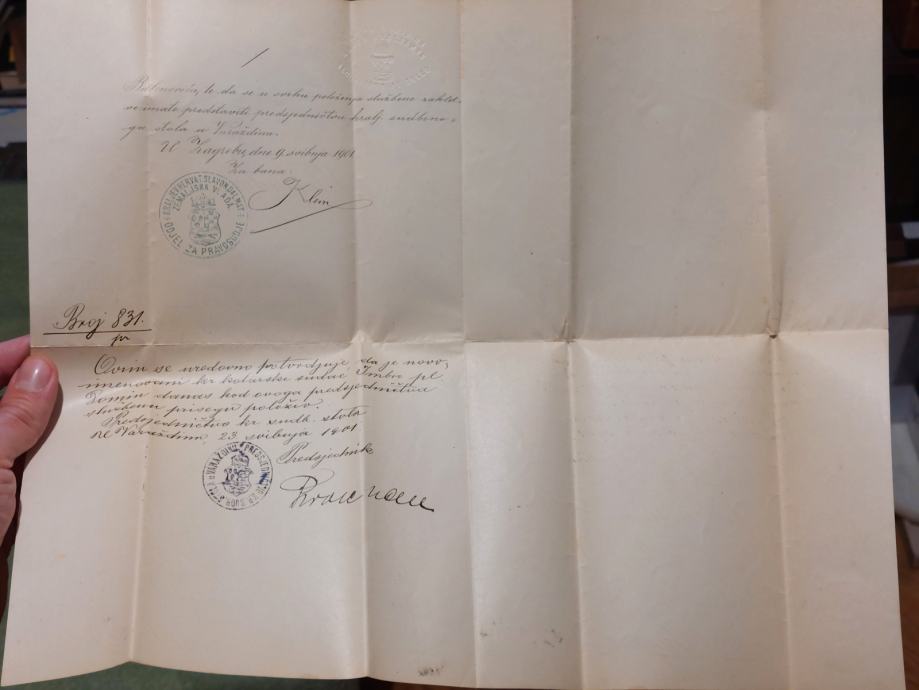 te da se u svrhu položenja službene zaklet-
ve imate predstaviti predsjedničtvu kralj. sudbeno-
ga stola u Varaždinu.
U Zagrebu, dne 9. svibnja 1901.
Za bana:
Klein
KRALJ. HRVAT. SLAVON. DALMAT.
ZEMALJSKA VLADA
ODJEL ZA PRAVOSUDJE
Broj 831.
pr
Ovim se uredovno potvrdjuje, da je novo-
imenovani kr kotarski sudac Imbro pl
danas kod ovoga predsjedničtva
službenu prisegu položio.
Predsjedničtvo kr sudb. stola
U Varaždinu 23 svibnja 1901
Predsjednik